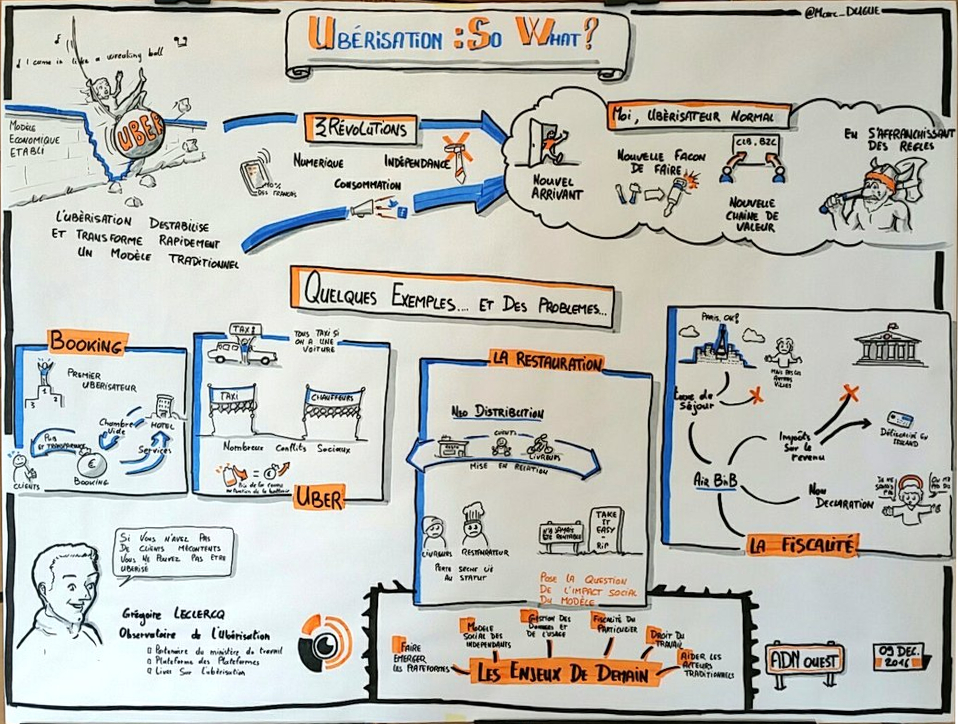 @Marc_DUGUE
UBÉRISATION : SO WHAT ?
I came in like a wrecking ball
UBER
MODÈLE
ECONOMIQUE
ETABLI
L'UBÉRISATION DESTABILISE
ET TRANSFORME RAPIDEMENT
UN MODÈLE TRADITIONNEL
3 RÉVOLUTIONS
NUMERIQUE
INDÉPENDANCE
CONSOMMATION
DES FRANCAIS
MOI, UBÉRISATEUR NORMAL
NOUVEL
ARRIVANT
NOUVELLE FACON
DE FAIRE
C2B, B2C
NOUVELLE
CHAINE DE
VALEUR
EN S'AFFRANCHISSANT
DES REGLES
QUELQUES EXEMPLES.... ET DES PROBLEMES...
BOOKING
PREMIER
UBERISATEUR
3 1 2
Chambre
Vide
HOTEL
PRIX
ET TRANSPARENCE
Services
CLIENTS
€
BOOKING
TAXI
TOUS TAXI SI
ON A UNE
VOITURE
TAXI
CHAUFFEURS
Nombreux Conflits Sociaux
Prix de la course
en fonction de la batterie
UBER
LA RESTAURATION
NEO DISTRIBUTION
CLIENTS
LIVREURS
MISE EN RELATION
LIVREURS
RESTAURATEUR
PERTE SECHE LIÉ
AU STATUT
N'A JAMAIS
ÉTÉ RENTABLE
TAKE
IT
EASY
-
RIP
POSE LA QUESTION
DE L'IMPACT SOCIAL
DU MODÈLE
PARIS, OK!
MAIS PAS LES
AUTRES
VILLES
Taxe de
Séjour
Impôts
Sur le
revenu
AIR BnB
NON
DECLARATION
JE NE
SAVAIS
PAS
LA FISCALITÉ
SI VOUS N'AVEZ PAS
DE CLIENTS MÉCONTENTS
VOUS NE POUVEZ PAS ETRE
UBERISÉ
Grégoire LECLERCQ
Observatoire de l'Ubérisation
Partenaire du ministère du travail
Plateforme des Plateformes
Livre Sur l'ubérisation
FAIRE
EMERGER
LES PLATEFORMES
MODELE
SOCIAL DES
INDEPENDANTS
GESTION DES
DONNÉES ET
DE L'USAGE
FISCALITÉ DU
PARTICULIER
DROIT DU
TRAVAIL
AIDER LES
ACTEURS
TRADITIONNELS
LES ENJEUX DE DEMAIN
ADN OUEST
09 DEC.
2016